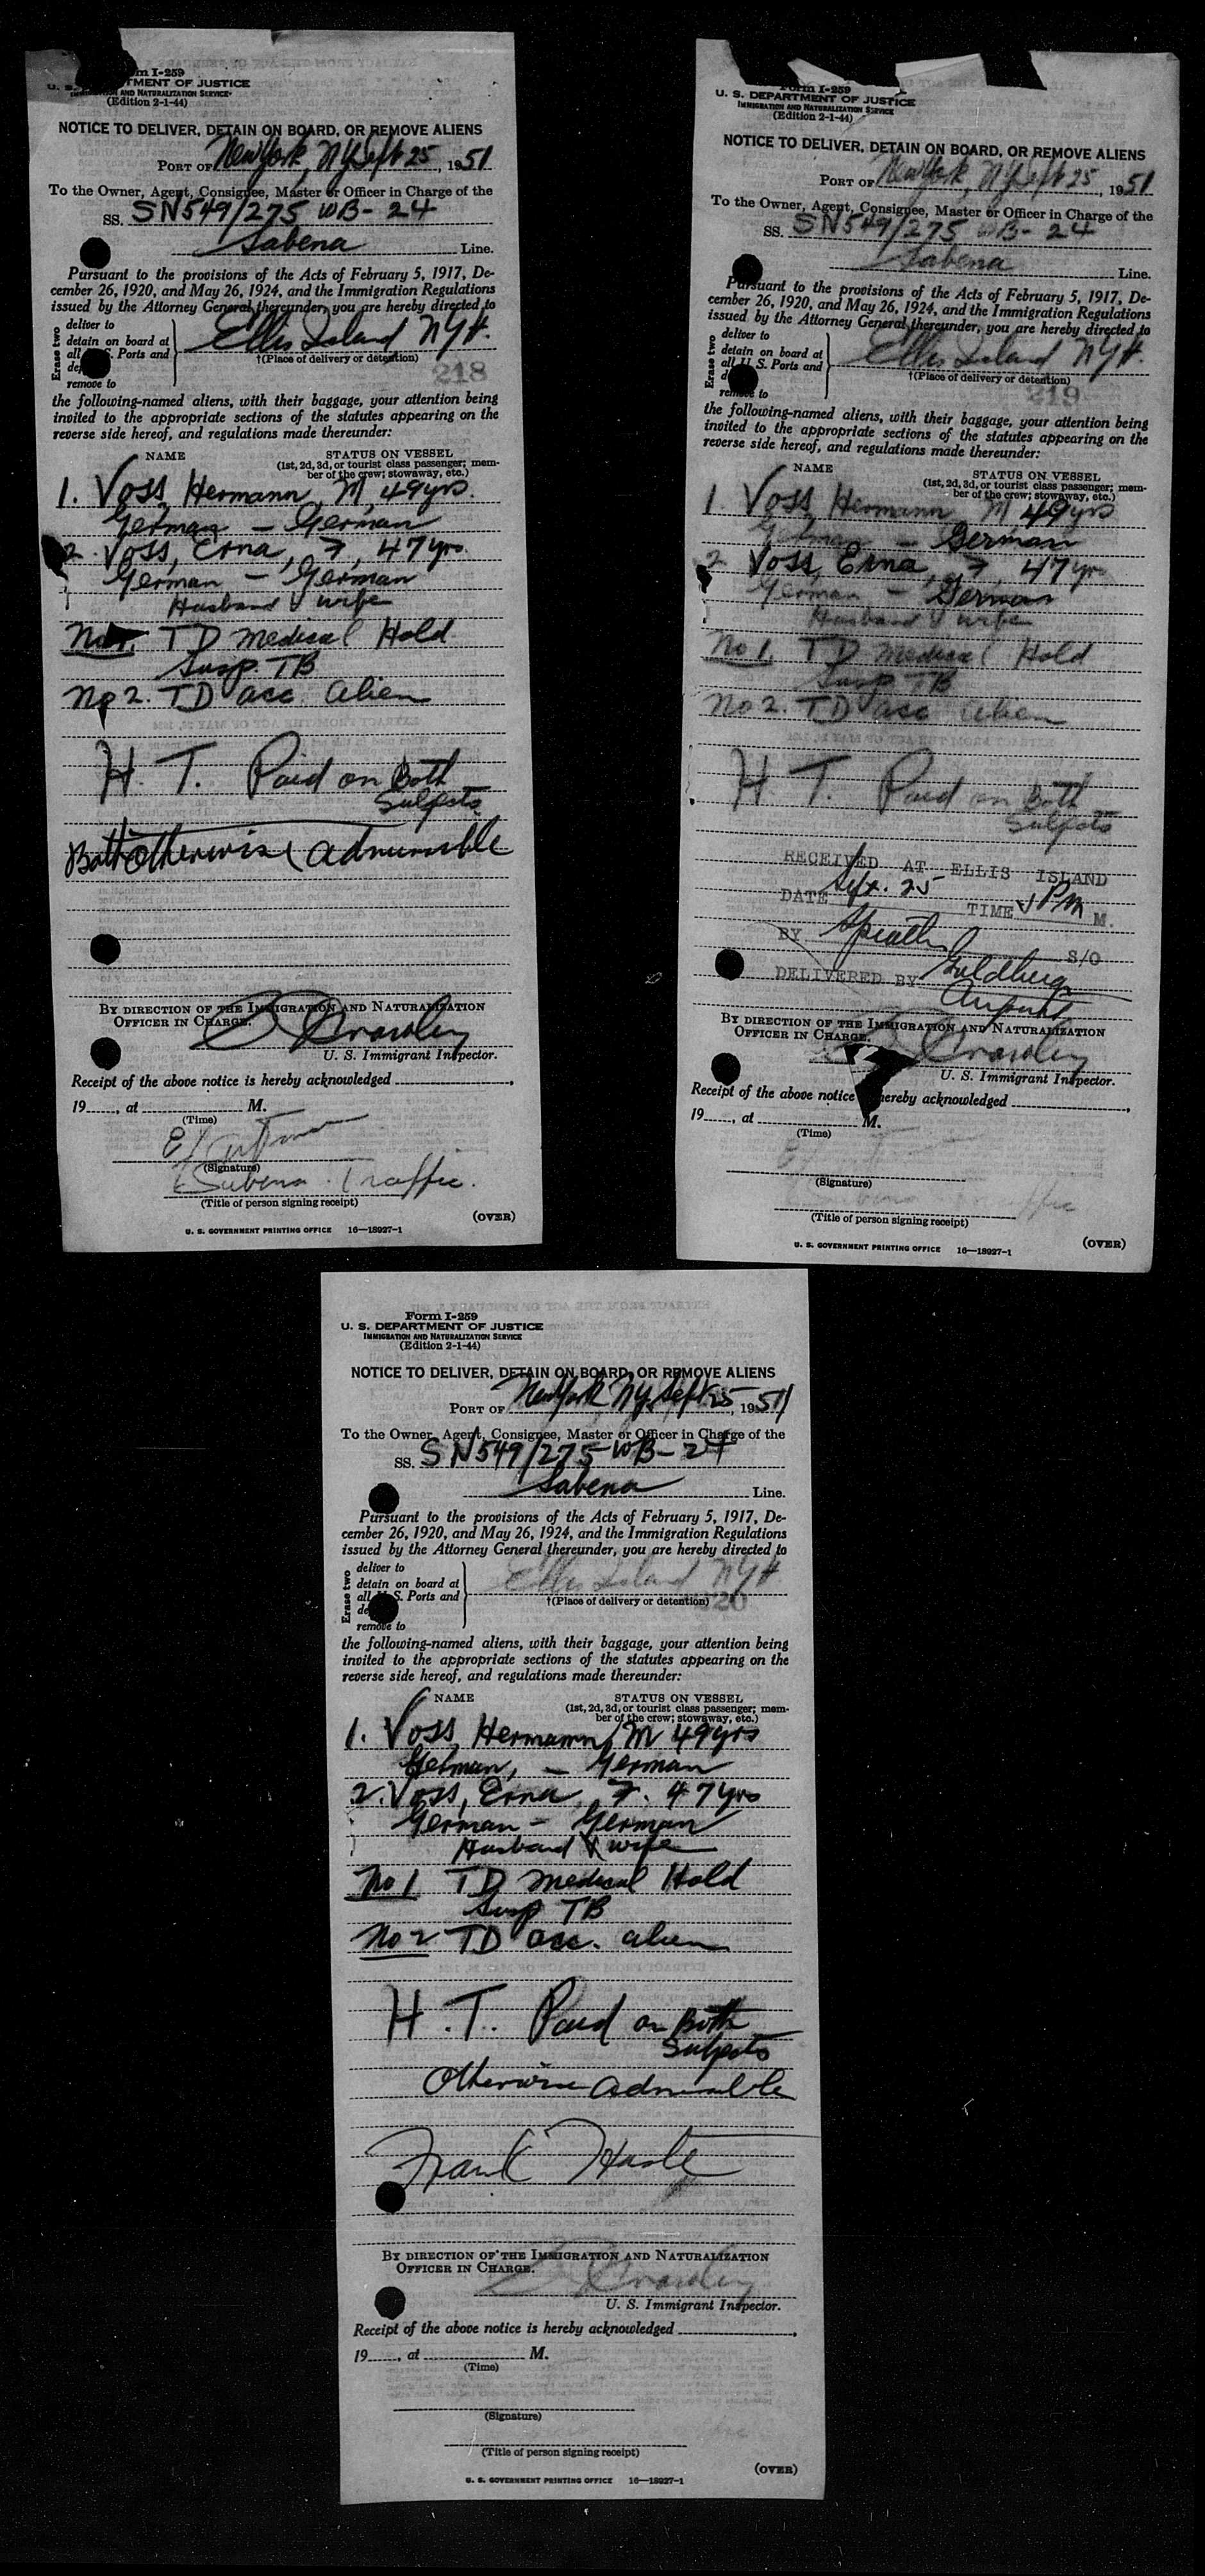 Form I-259
U. S. DEPARTMENT OF JUSTICE
AND NATURALIZATION SERVICE
(Edition 2-1-44)
NOTICE TO DELIVER, DETAIN ON BOARD, OR REMOVE ALIENS
PORT OF New York, NY Sept 25, 1951
To the Owner, Agent, Consignee, Master or Officer in Charge of the
SS. SN549/275 WB-24
Sabena Line.
Pursuant to the provisions of the Acts of February 5, 1917, De-
cember 26, 1920, and May 26, 1924, and the Immigration Regulations
issued by the Attorney General thereunder, you are hereby directed to
Erase two
deliver to
detain on board at
all U. S. Ports and
remove to
Ellis Island NYH.
†(Place of delivery or detention)
218
the following-named aliens, with their baggage, your attention being
invited to the appropriate sections of the statutes appearing on the
reverse side hereof, and regulations made thereunder:
NAME STATUS ON VESSEL
(1st, 2d, 3d, or tourist class passenger; mem-
ber of the crew; stowaway, etc.)
1. Voss, Hermann, M, 49 yrs.
German - German
2. Voss, Erna, F, 47 yrs.
German - German
Husband & wife
No 1. TD medical Hold
Susp. TB
No 2. TD acc. alien
H. T. Paid on Both
Subjects
Both otherwise admissible
BY DIRECTION OF THE IMMIGRATION AND NATURALIZATION
OFFICER IN CHARGE.
Crowley
U. S. Immigrant Inspector.
Receipt of the above notice is hereby acknowledged
19, at M.
(Time)
(Signature)
Sabena Traffic.
(Title of person signing receipt)
(OVER)
U. S. GOVERNMENT PRINTING OFFICE 16—18927-1
Form I-259
U. S. DEPARTMENT OF JUSTICE
IMMIGRATION AND NATURALIZATION SERVICE
(Edition 2-1-44)
NOTICE TO DELIVER, DETAIN ON BOARD, OR REMOVE ALIENS
PORT OF New York, NY Sept 25, 1951
To the Owner, Agent, Consignee, Master or Officer in Charge of the
SS. SN549/275 WB-24
Sabena Line.
Pursuant to the provisions of the Acts of February 5, 1917, De-
cember 26, 1920, and May 26, 1924, and the Immigration Regulations
issued by the Attorney General thereunder, you are hereby directed to
Erase two
deliver to
detain on board at
all U. S. Ports and
remove to
Ellis Island NYH.
†(Place of delivery or detention)
219
the following-named aliens, with their baggage, your attention being
invited to the appropriate sections of the statutes appearing on the
reverse side hereof, and regulations made thereunder:
NAME STATUS ON VESSEL
(1st, 2d, 3d, or tourist class passenger; mem-
ber of the crew; stowaway, etc.)
1. Voss, Hermann M 49 yrs
German - German
2 Voss, Erna, F, 47 yrs
German - German
Husband & wife
No 1. TD medical Hold
Susp TB
No 2. TD acc alien
H T. Paid on Both
Subjects
RECEIVED AT ELLIS ISLAND
DATE Sept. 25 TIME PM M.
BY S/O
DELIVERED BY Goldberg
Airport
BY DIRECTION OF THE IMMIGRATION AND NATURALIZATION
OFFICER IN CHARGE.
Crowley
U. S. Immigrant Inspector.
Receipt of the above notice hereby acknowledged
19, at M.
(Time)
(Signature)
(Title of person signing receipt)
(OVER)
U. S. GOVERNMENT PRINTING OFFICE 16—18927-1
Form I-259
U. S. DEPARTMENT OF JUSTICE
IMMIGRATION AND NATURALIZATION SERVICE
(Edition 2-1-44)
NOTICE TO DELIVER, DETAIN ON BOARD, OR REMOVE ALIENS
PORT OF New York NY. Sept 25, 1951
To the Owner, Agent, Consignee, Master or Officer in Charge of the
SS. SN549/275 WB-24
Sabena Line.
Pursuant to the provisions of the Acts of February 5, 1917, De-
cember 26, 1920, and May 26, 1924, and the Immigration Regulations
issued by the Attorney General thereunder, you are hereby directed to
Erase two
deliver to
detain on board at
all U. S. Ports and
remove to
Ellis Island NYH
†(Place of delivery or detention)
220
the following-named aliens, with their baggage, your attention being
invited to the appropriate sections of the statutes appearing on the
reverse side hereof, and regulations made thereunder:
NAME STATUS ON VESSEL
(1st, 2d, 3d, or tourist class passenger; mem-
ber of the crew; stowaway, etc.)
1. Voss, Hermann, M 49 yrs
German, - German
2. Voss, Erna, F. 47 yrs
German - German
Husband & wife
No 1 TD medical Hold
Susp TB
No 2 TD acc. alien
H. T. Paid on Both
Subjects
Otherwise admissible
Frank
BY DIRECTION OF THE IMMIGRATION AND NATURALIZATION
OFFICER IN CHARGE.
Crowley
U. S. Immigrant Inspector.
Receipt of the above notice is hereby acknowledged
19, at M.
(Time)
(Signature)
(Title of person signing receipt)
(OVER)
U. S. GOVERNMENT PRINTING OFFICE 16—18927-1